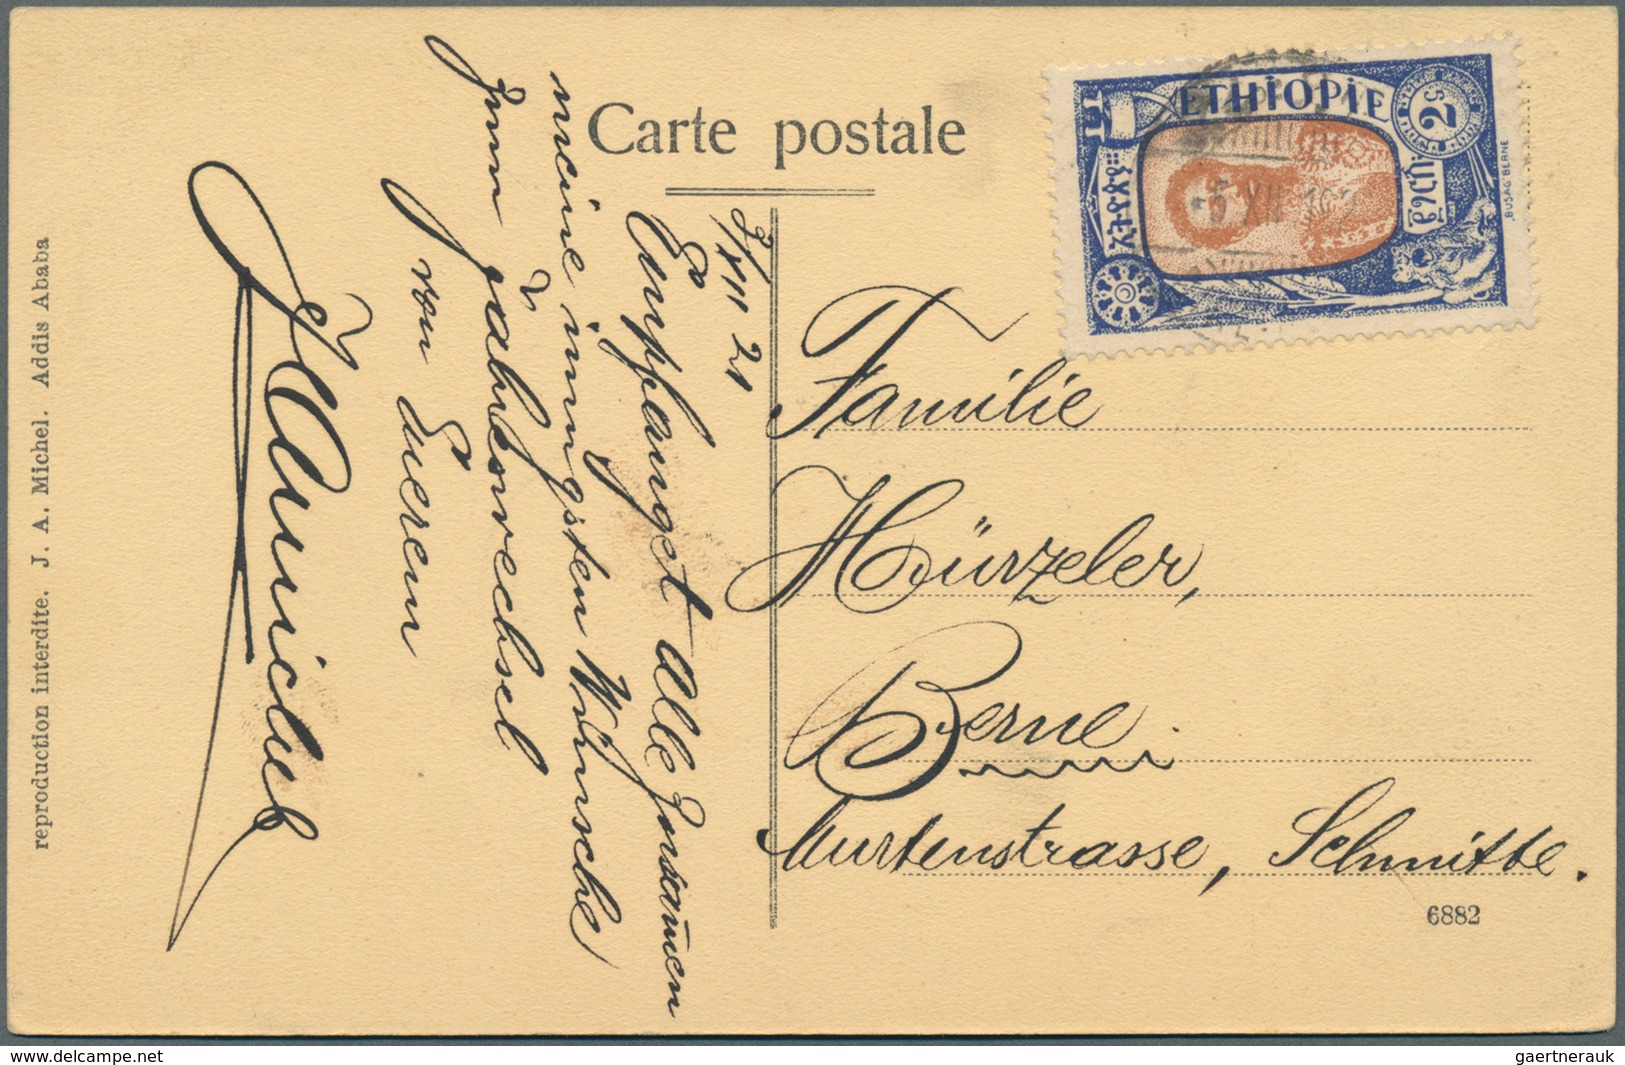 Carte postale
ETHIOPIE
2 G
ኢትዮጵያ።
BUSAG BERNE
-5 XII 192
3/XII 21
Empfanget Alle zusamen
meine innigsten Wünsche
zum Jahreswechsel
von Eurem
Familie
Hürzeler,
Berne.
Murtenstrasse, Schmitte.
6882
reproduction interdite. J. A. Michel. Addis Ababa
delcampe.net
gaertnerauk